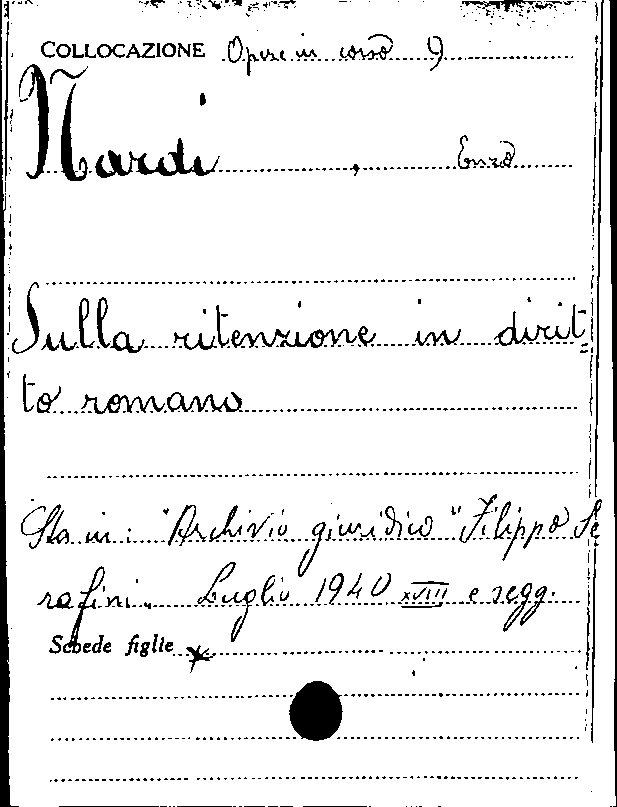 COLLOCAZIONE Opere in corso 9
Nardi , Enzo
Sulla ritenzione in dirit=
to romano
Sta in: "Archivio giuridico "Filippo Se
rafini„ Luglio 1940 XVIII e segg.
Schede figlie